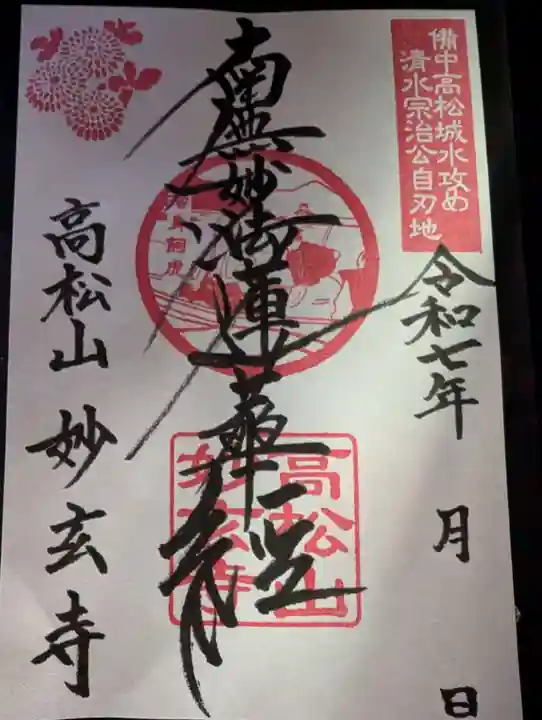 備中高松城水攻め
清水宗治公自刃地
令和七年 月 日
南無妙法蓮華経
高松山
妙玄寺
高松山 妙玄寺